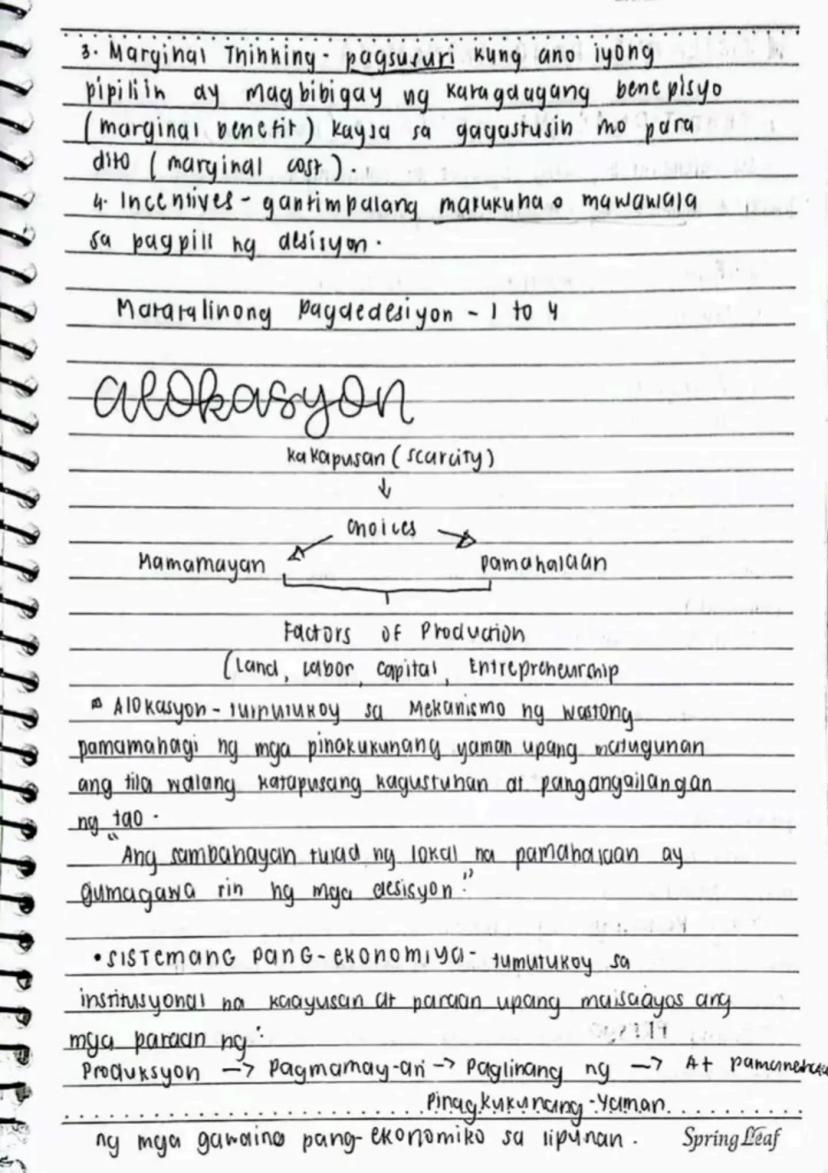 3. Marginal Thinking - pagsusuri kung ano iyong
pipiliin ay magbibigay ng karagdagang benepisyo
(marginal benefit) kaysa sa gagastusin mo para
dito (marginal cost).
4. Incentives - gantimpalang makukuha o mawawala
sa pagpili ng desisyon.
Matatalinong Pagdedesiyon - 1 to 4
alokasyon
kakapusan (scarcity)
↓
choices
Mamamayan pamahalaan
Factors of Production
(Land, Labor, capital, Entrepreneurship
Alokasyon - tumutukoy sa Mekanismo ng wastong
pamamahagi ng mga pinakukunang yaman upang matugunan
ang tila walang katapusang kagustuhan at pangangailangan
ng tao.
"Ang sambahayan tulad ng lokal na pamahalaan ay
gumagawa rin ng mga desisyon."
• SISTEMANG PANG-EKONOMIYA - tumutukoy sa
institusyonal na kaayusan at paraan upang maisaayos ang
mga paraan ng:
Produksyon -> Pagmamay-ari -> Paglinang ng -> At
Pinagkukunang-Yaman
ng mga gawaing pang-ekonomiko sa lipunan.
Spring Leaf